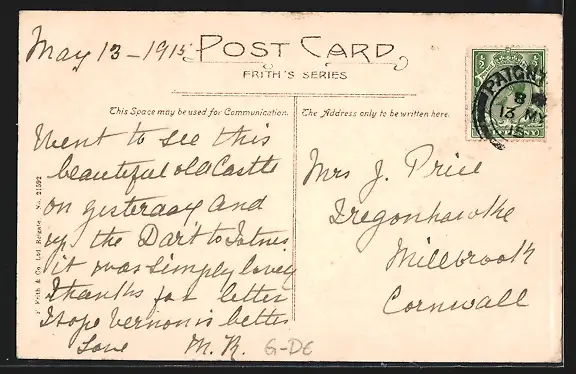 May 13 - 1915
POST CARD
FRITH'S SERIES
This Space may be used for Communication.
The Address only to be written here.
Went to see this
beautiful old Castle
on yesterday and
up the Dart to Totnes
it was simply lovely
Thanks for letter
I hope Vernon is better
Love M. R.
G-DE
Mrs J. Price
Tregonhawke
Millbrook
Cornwall
F. Frith & Co. Ltd. Reigate. No. 21592
PAIGNT
8
13 MY
15